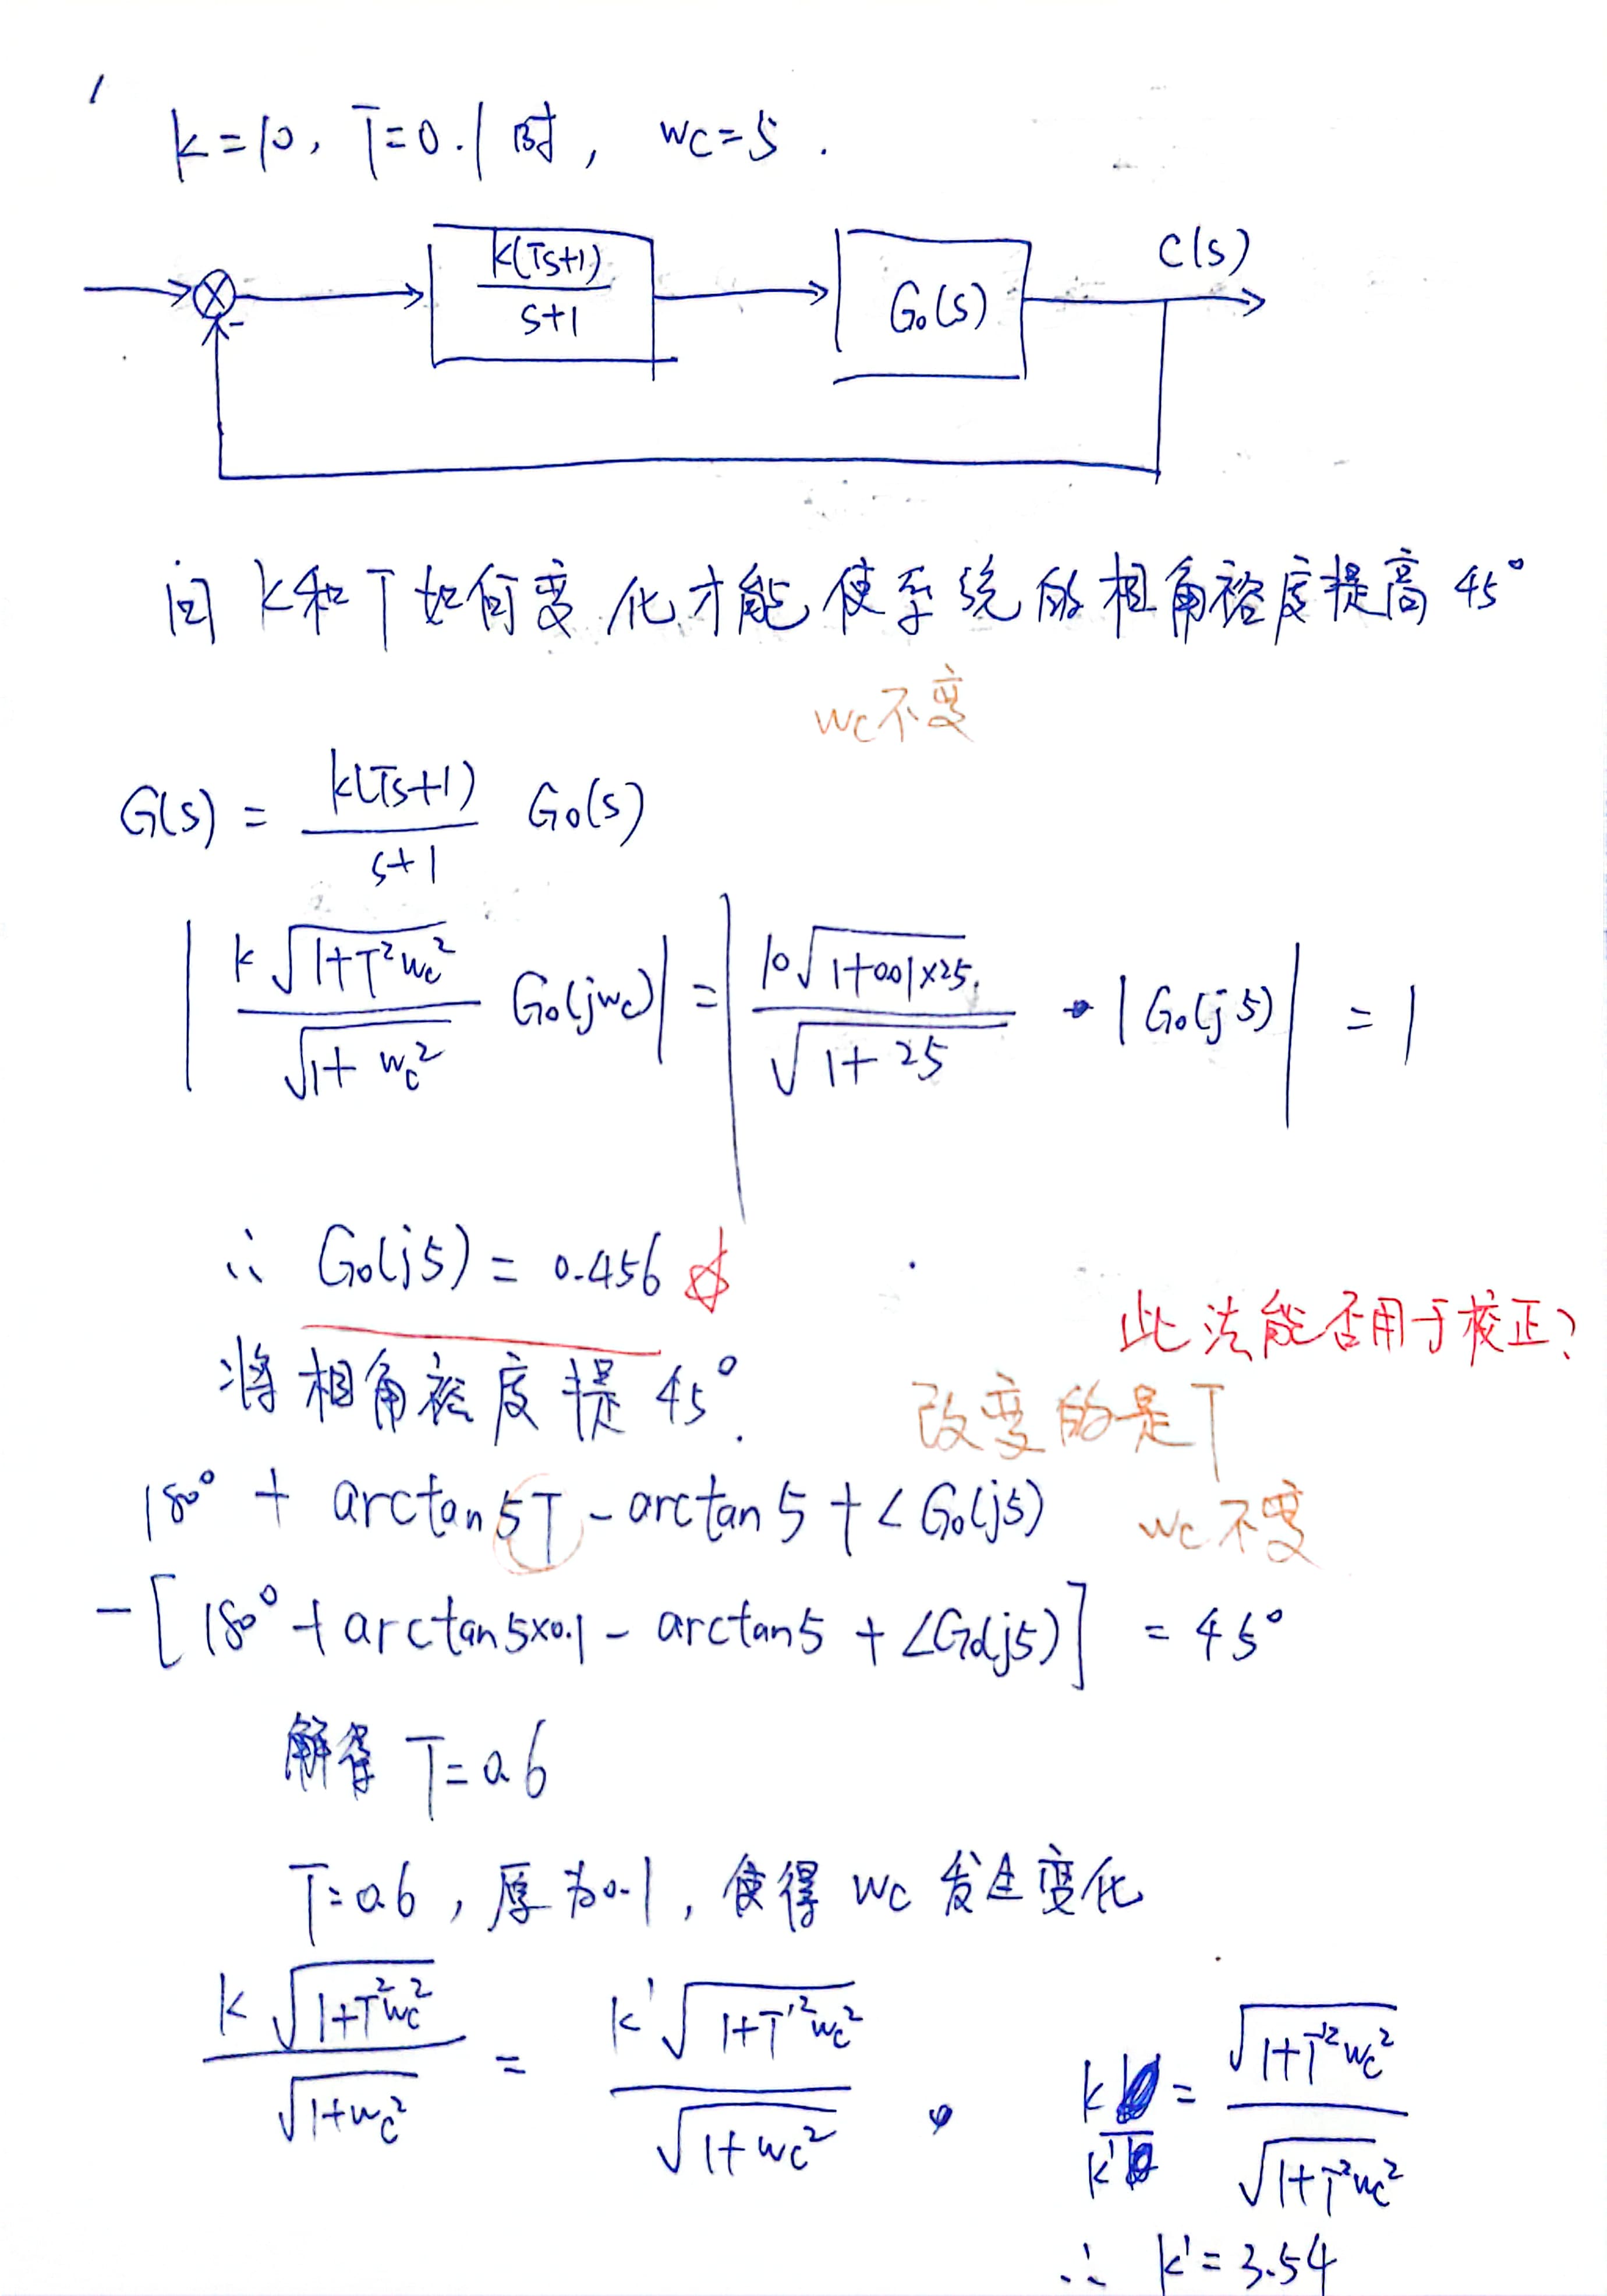 1
k=10, T=0.1时, wc=5.
k(Ts+1)
s+1
G₀(s)
C(s)
-
问 k和T如何变化才能使系统的相角裕度提高45°
wc不变
G(s) = k(Ts+1)/(s+1) G₀(s)
| k√(1+T²wc²) / √(1+wc²) G₀(jwc) | = | 10√(1+0.01×25) / √(1+25) · |G₀(j5)| | = 1
∴ G₀(j5) = 0.456 ☆
此法能否用于校正?
将相角裕度提45°.
改变的是T
180° + arctan5T - arctan5 + ∠G₀(j5)
wc不变
- [180° + arctan5×0.1 - arctan5 + ∠G₀(j5)] = 45°
解得 T=0.6
T=0.6, 原为0.1, 使得 wc 发生变化
k√(1+T²wc²) / √(1+wc²) = k'√(1+T'²wc²) / √(1+wc²) . k/k' = √(1+T'²wc²) / √(1+T²wc²)
∴ k'=3.54